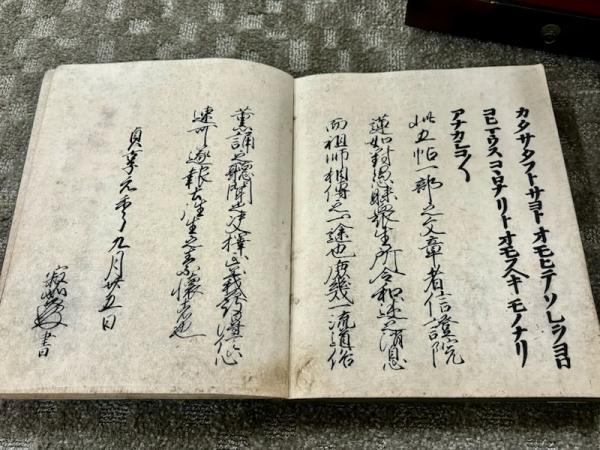 カタサタフトサヨト オモヒテソレヲヨロ
コヒマウスコヽロナリトオモフヘキモノナリ
アナカシコ〱
此五帖一部之文章者信證院
蓮如対愚昧衆生所令和述之消息
而祖師相傳之一途也庶幾一流道俗
薫誦之聴聞之决擇正義發 信心
速可遂報土往生之素懐者也
貞享元年九月廿五日
寂如 書